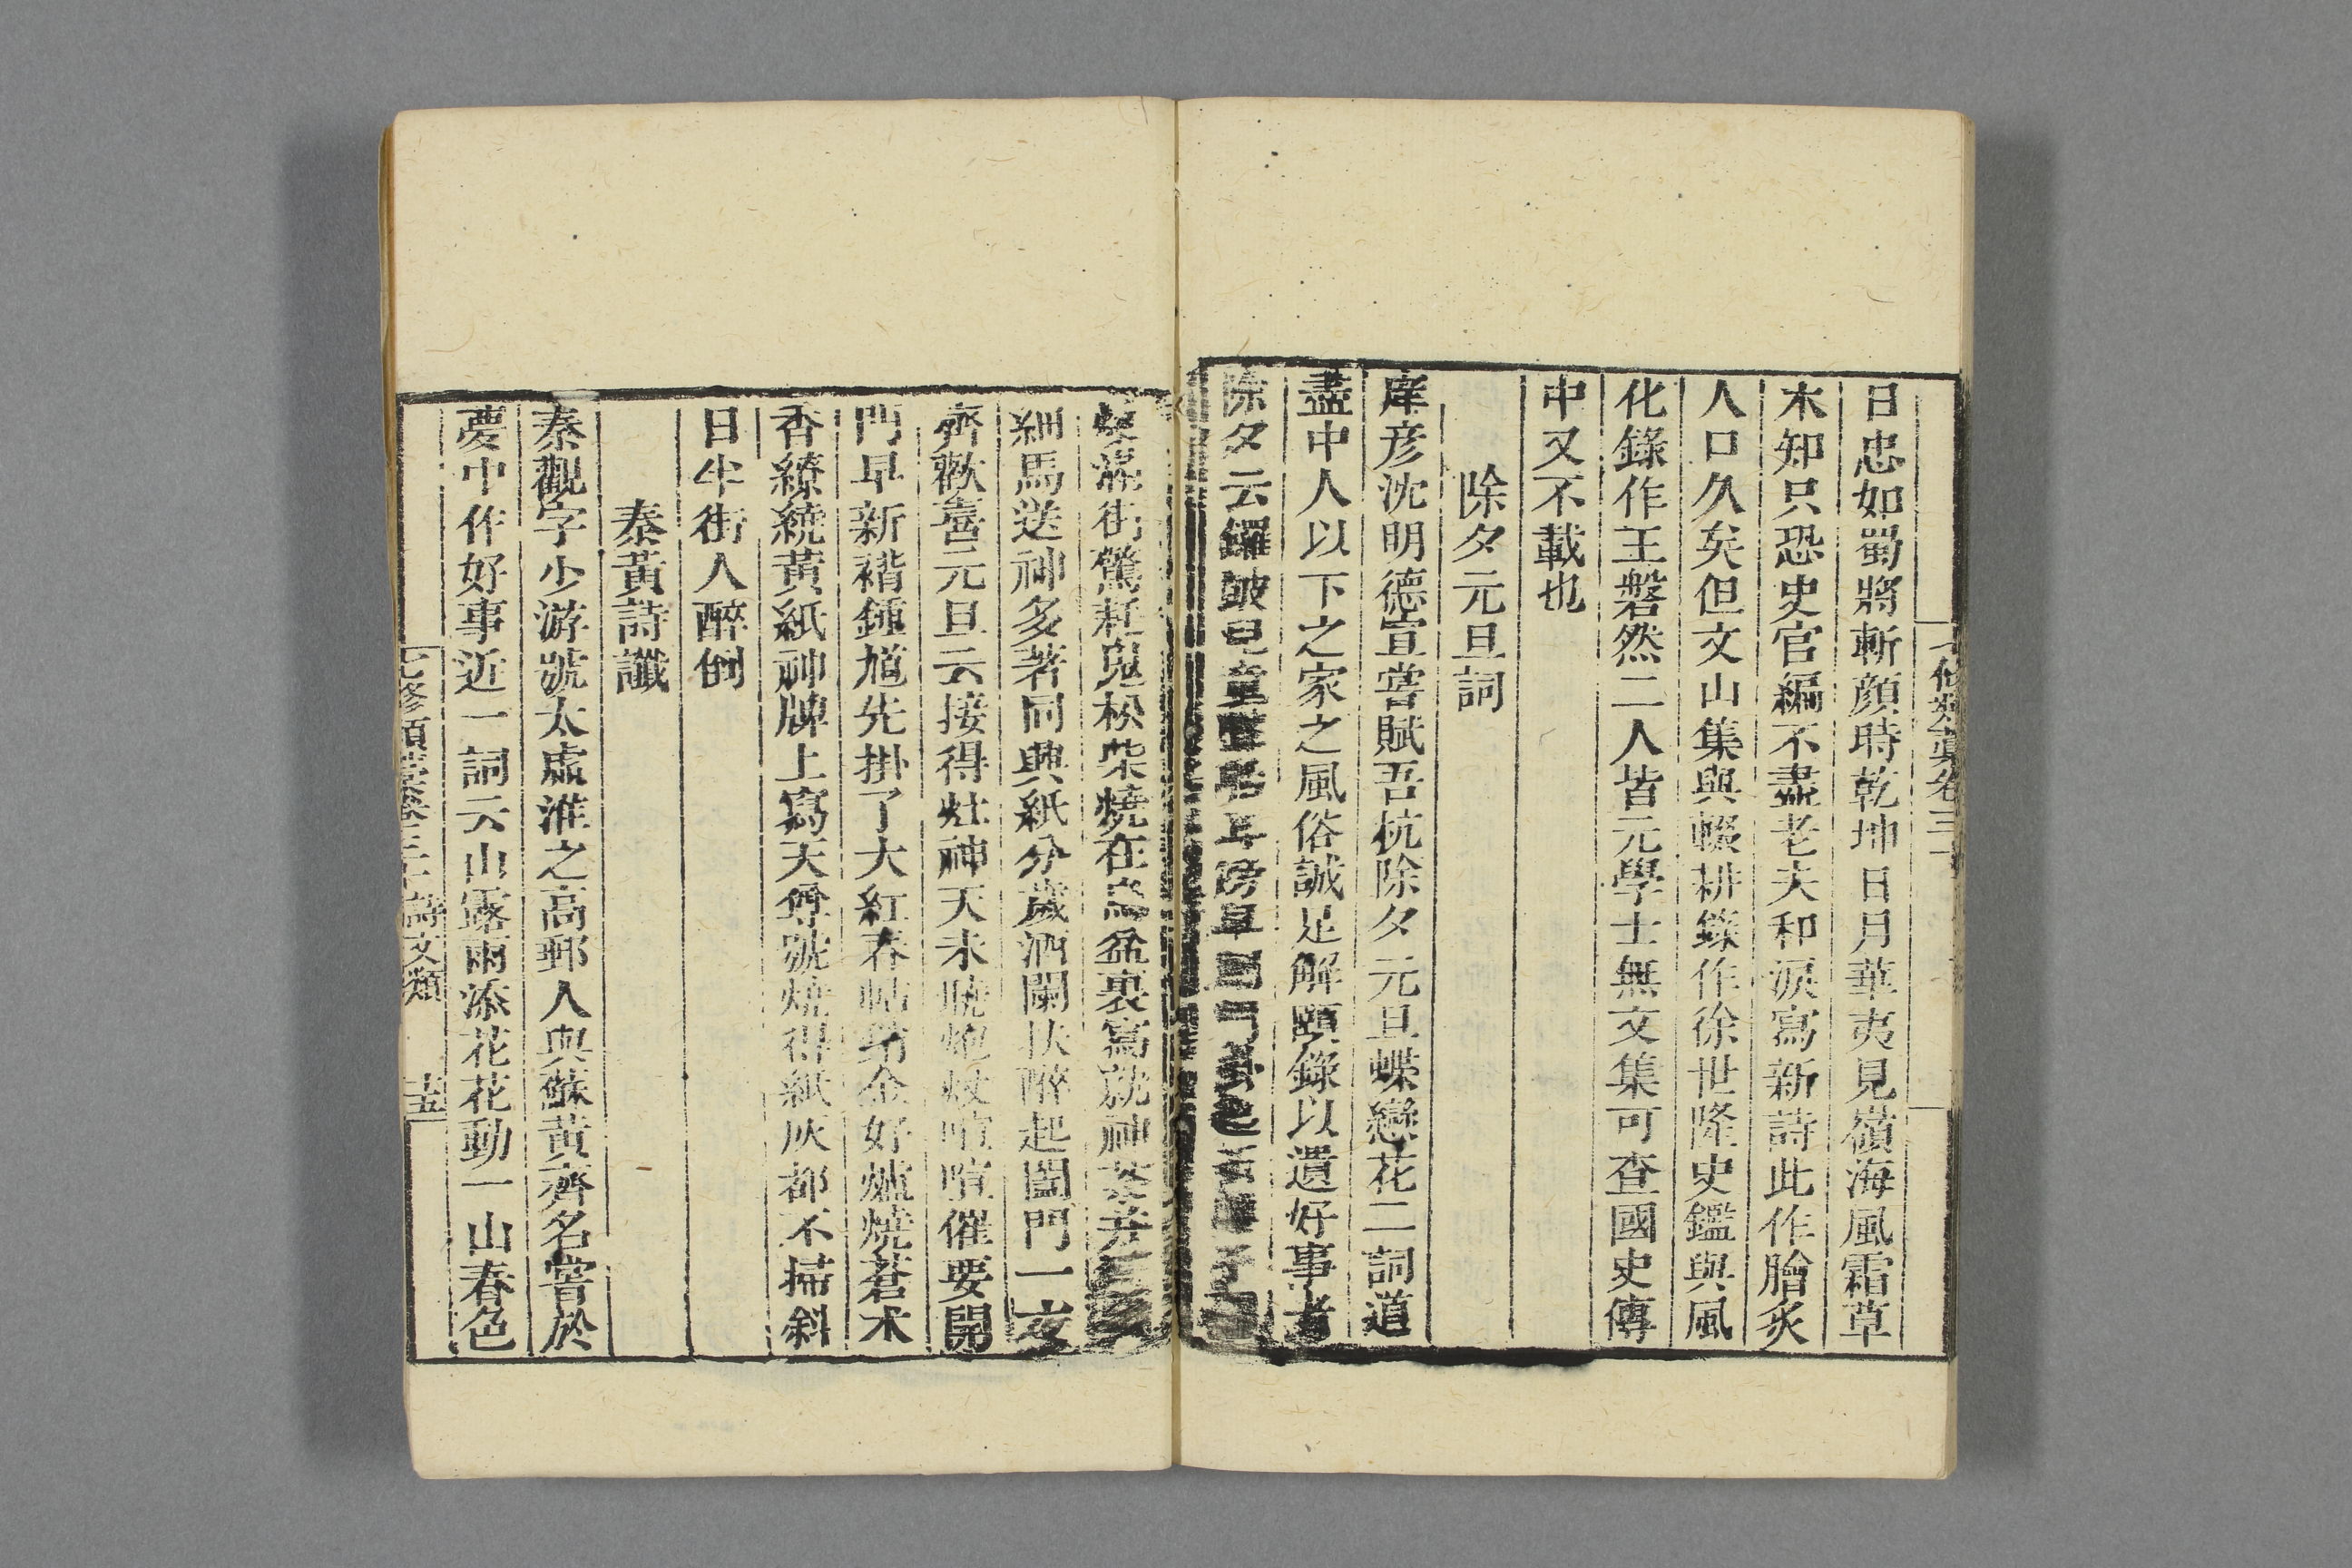 日忠如蜀將斬顔時乾坤日月華夷見嶺海風霜草
木知只恐史官編不盡老夫和淚寫新詩此作膾炙
人口久矣但文山集與輟耕錄作徐世隆史鑑與風
化錄作王磐然二人皆元學士無文集可查國史傳
中又不載也
除夕元旦詞
庠彦沈明德宣嘗賦吾杭除夕元旦蝶戀花二詞道
盡中人以下之家之風俗誠足解頤錄以遺好事者
除夕云鑼鼓
滿街驚耗鬼松柴燒在烏盆裏寫就神荼并
細馬送神多著同興紙分歲酒闌扶醉起闔門一
齊歡喜元旦云接得灶神天未曉炮杖喧喧催要開
門早新褙鍾馗先掛了大紅春帖銷金好爐燒蒼术
香繚繞黃紙神牌上寫天尊號燒得紙灰都不掃斜
日半街人醉倒
秦黃詩讖
秦觀字少游號太虛淮之高郵人與蘇黃齊名嘗於
夢中作好事近一詞云山露雨添花花動一山春色
七修類藁卷三十 詩文類 十五